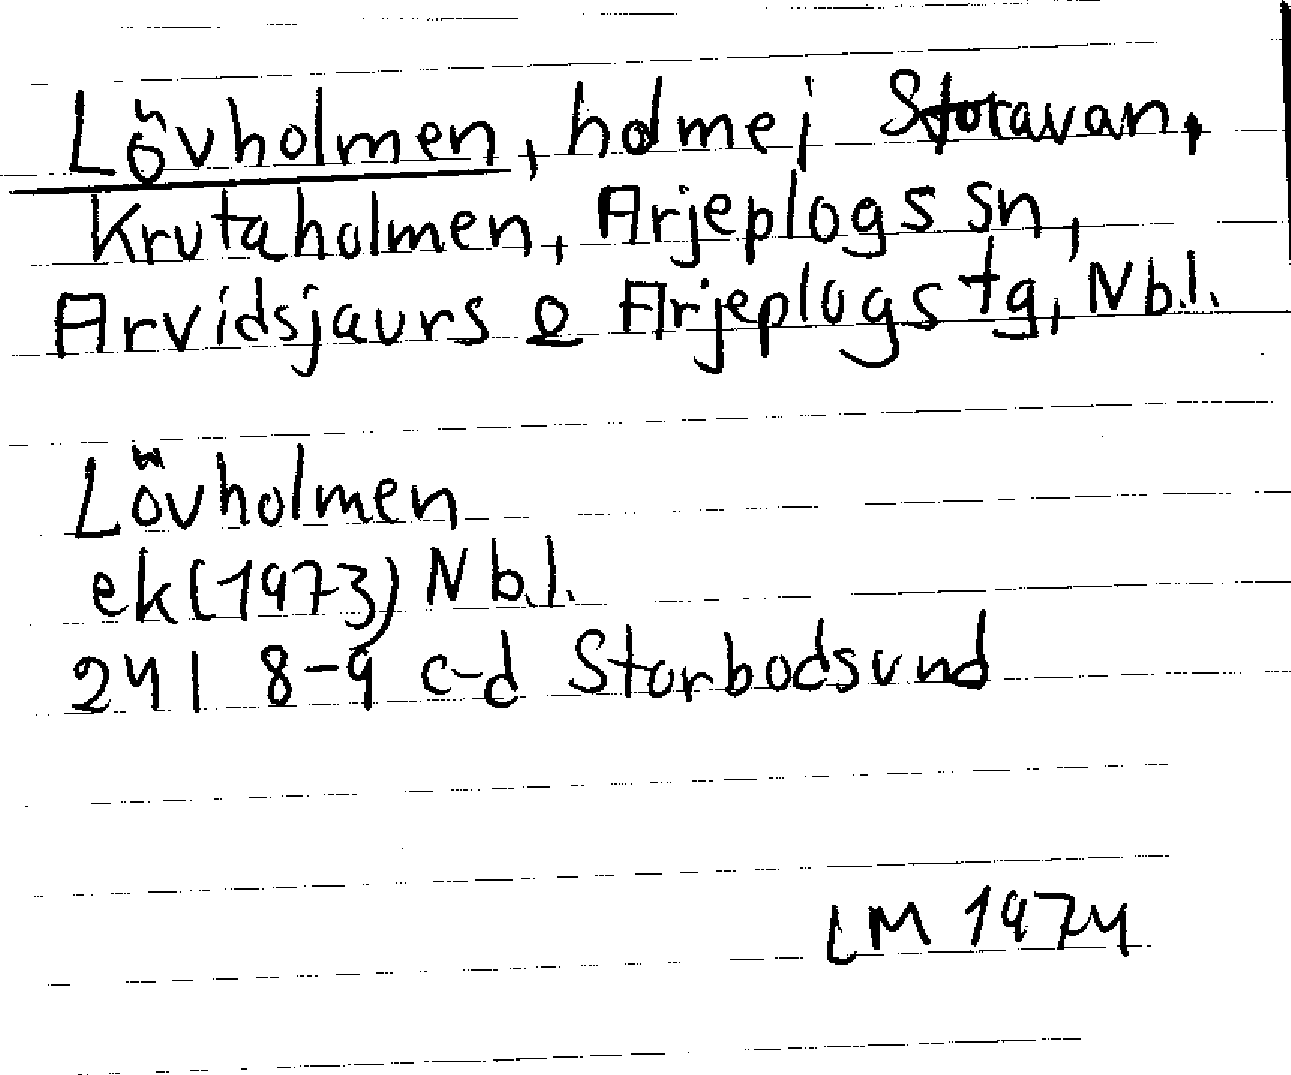 Lövholmen, holme i Storavan,
Krutaholmen, Arjeplogs sn,
Arvidsjaurs o Arjeplogs tg, Nb.l.
Lövholmen
ek (1973) Nb.l.
24 I 8-9 c-d Storbodsund
LM 1974